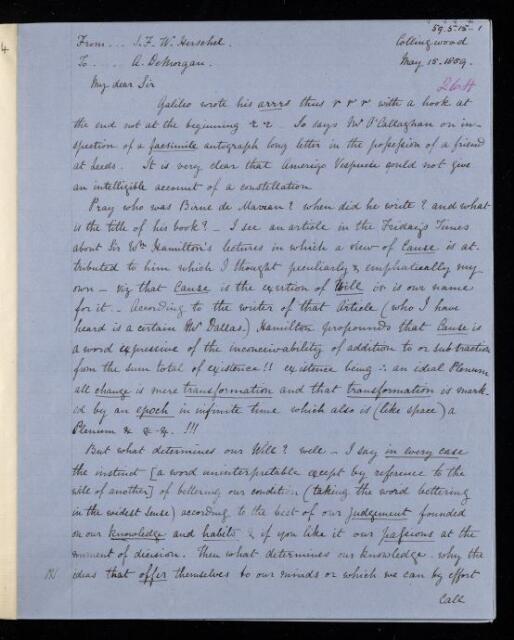 59.5-15-1
From... J. F. W. Herschel. Collingwood
To... A. DeMorgan. May 15. 1859.
264
My dear Sir
Galileo wrote his arrrs thus r r r with a hook at
the end not at the beginning – So says Mr O'Callaghan on in-
spection of a facsimile autograph long letter in the possession of a friend
at Leeds. It is very clear that Amerigo Vespucci could not give
an intelligible account of a constellation
Pray who was Birne de ? when did he write? and what
is the title of his book? – I see an article in the Friday's Times
about Sir Wm Hamilton's lectures in which a view of Cause is at-
tributed to him which I thought peculiarly & emphatically my
own – viz that Cause is the exertion of Will or is our name
for it. – According to the writer of that Article (who I have
heard is a certain Mr Dallas.) Hamilton propounds that Cause is
a word expressive of the inconceivability of addition to or subtraction
from the sum total of existence!! existence being ∴ an ideal Plenum
all change is mere transformation and that transformation is mark-
'd by an epoch in infinite time which also is (like space) a
Plenum & & &. !!!
But what determines our Will? well – I say in every case
the instinct [a word uninterpretable except by reference to the
will of another] of bettering our condition (taking the word bettering
in the widest sense) according to the best of our judgement founded
on our knowledge and habits & if you like it our passions at the
moment of decision. Then what determines our knowledge. why the
ideas that offer themselves to our minds or which we can by effort
Call